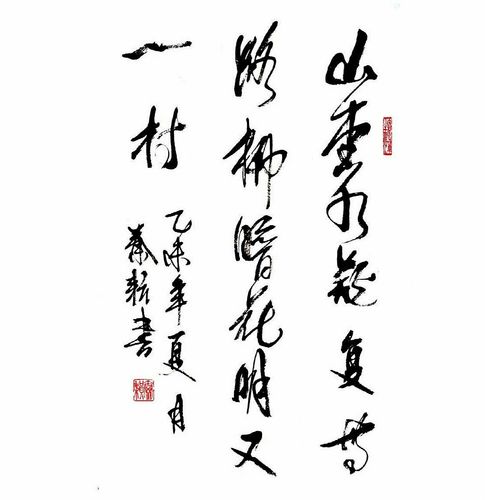 山重水疑复无
路柳暗花明又
一村
乙未年夏月
書